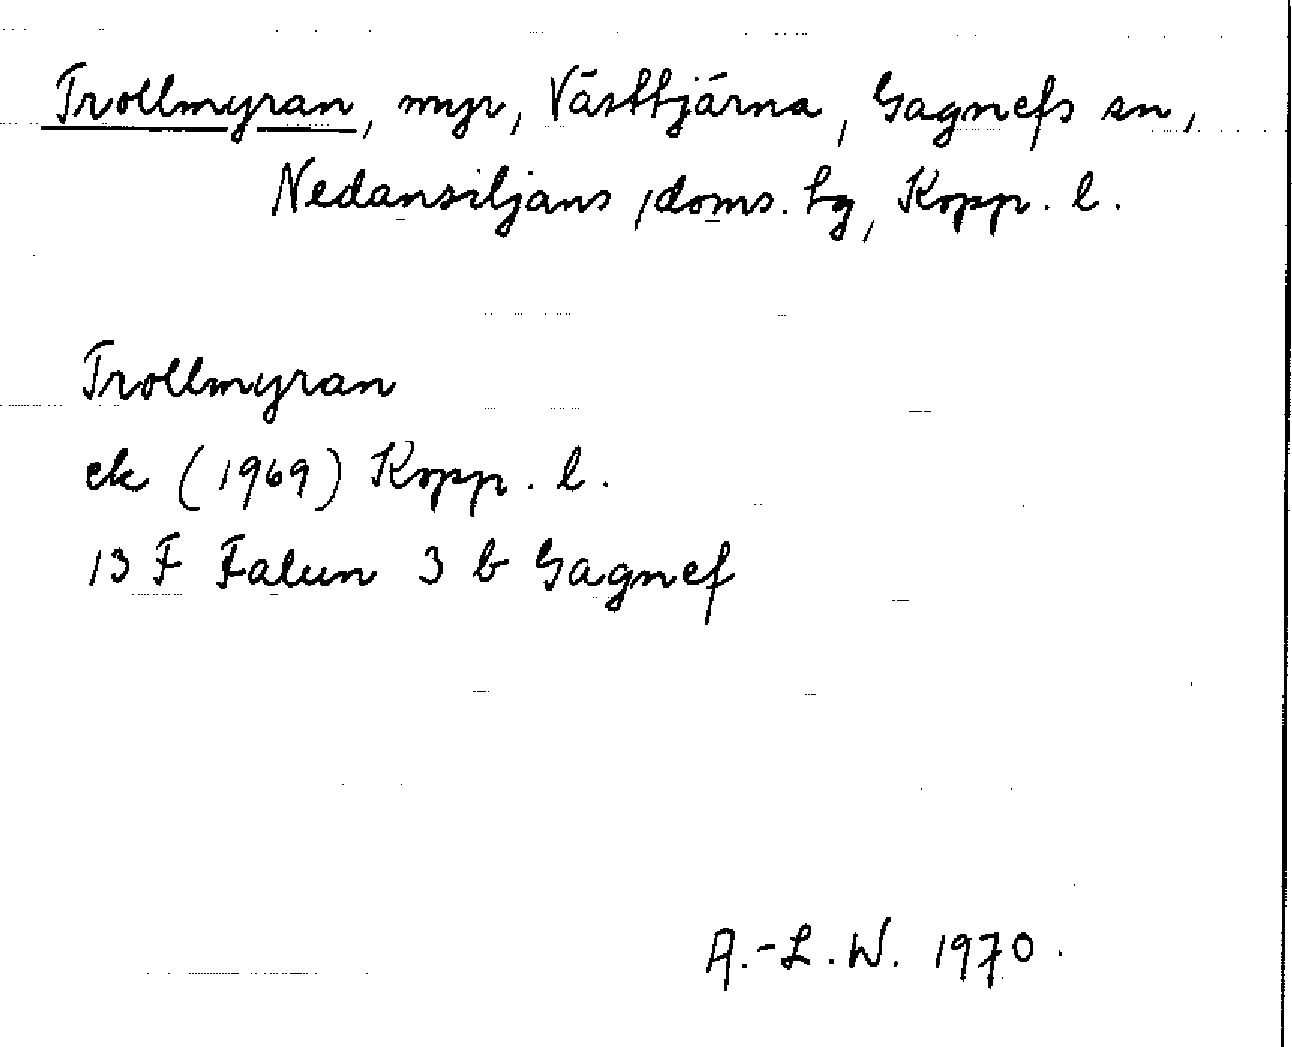 Trollmyran, myr, Västtjärna, Gagnefs sn,
Nedansiljans doms. tg, Kopp. l.
Trollmyran
ek (1969) Kopp. l.
13 F Falun 3 b Gagnef
A.-L.W. 1970.